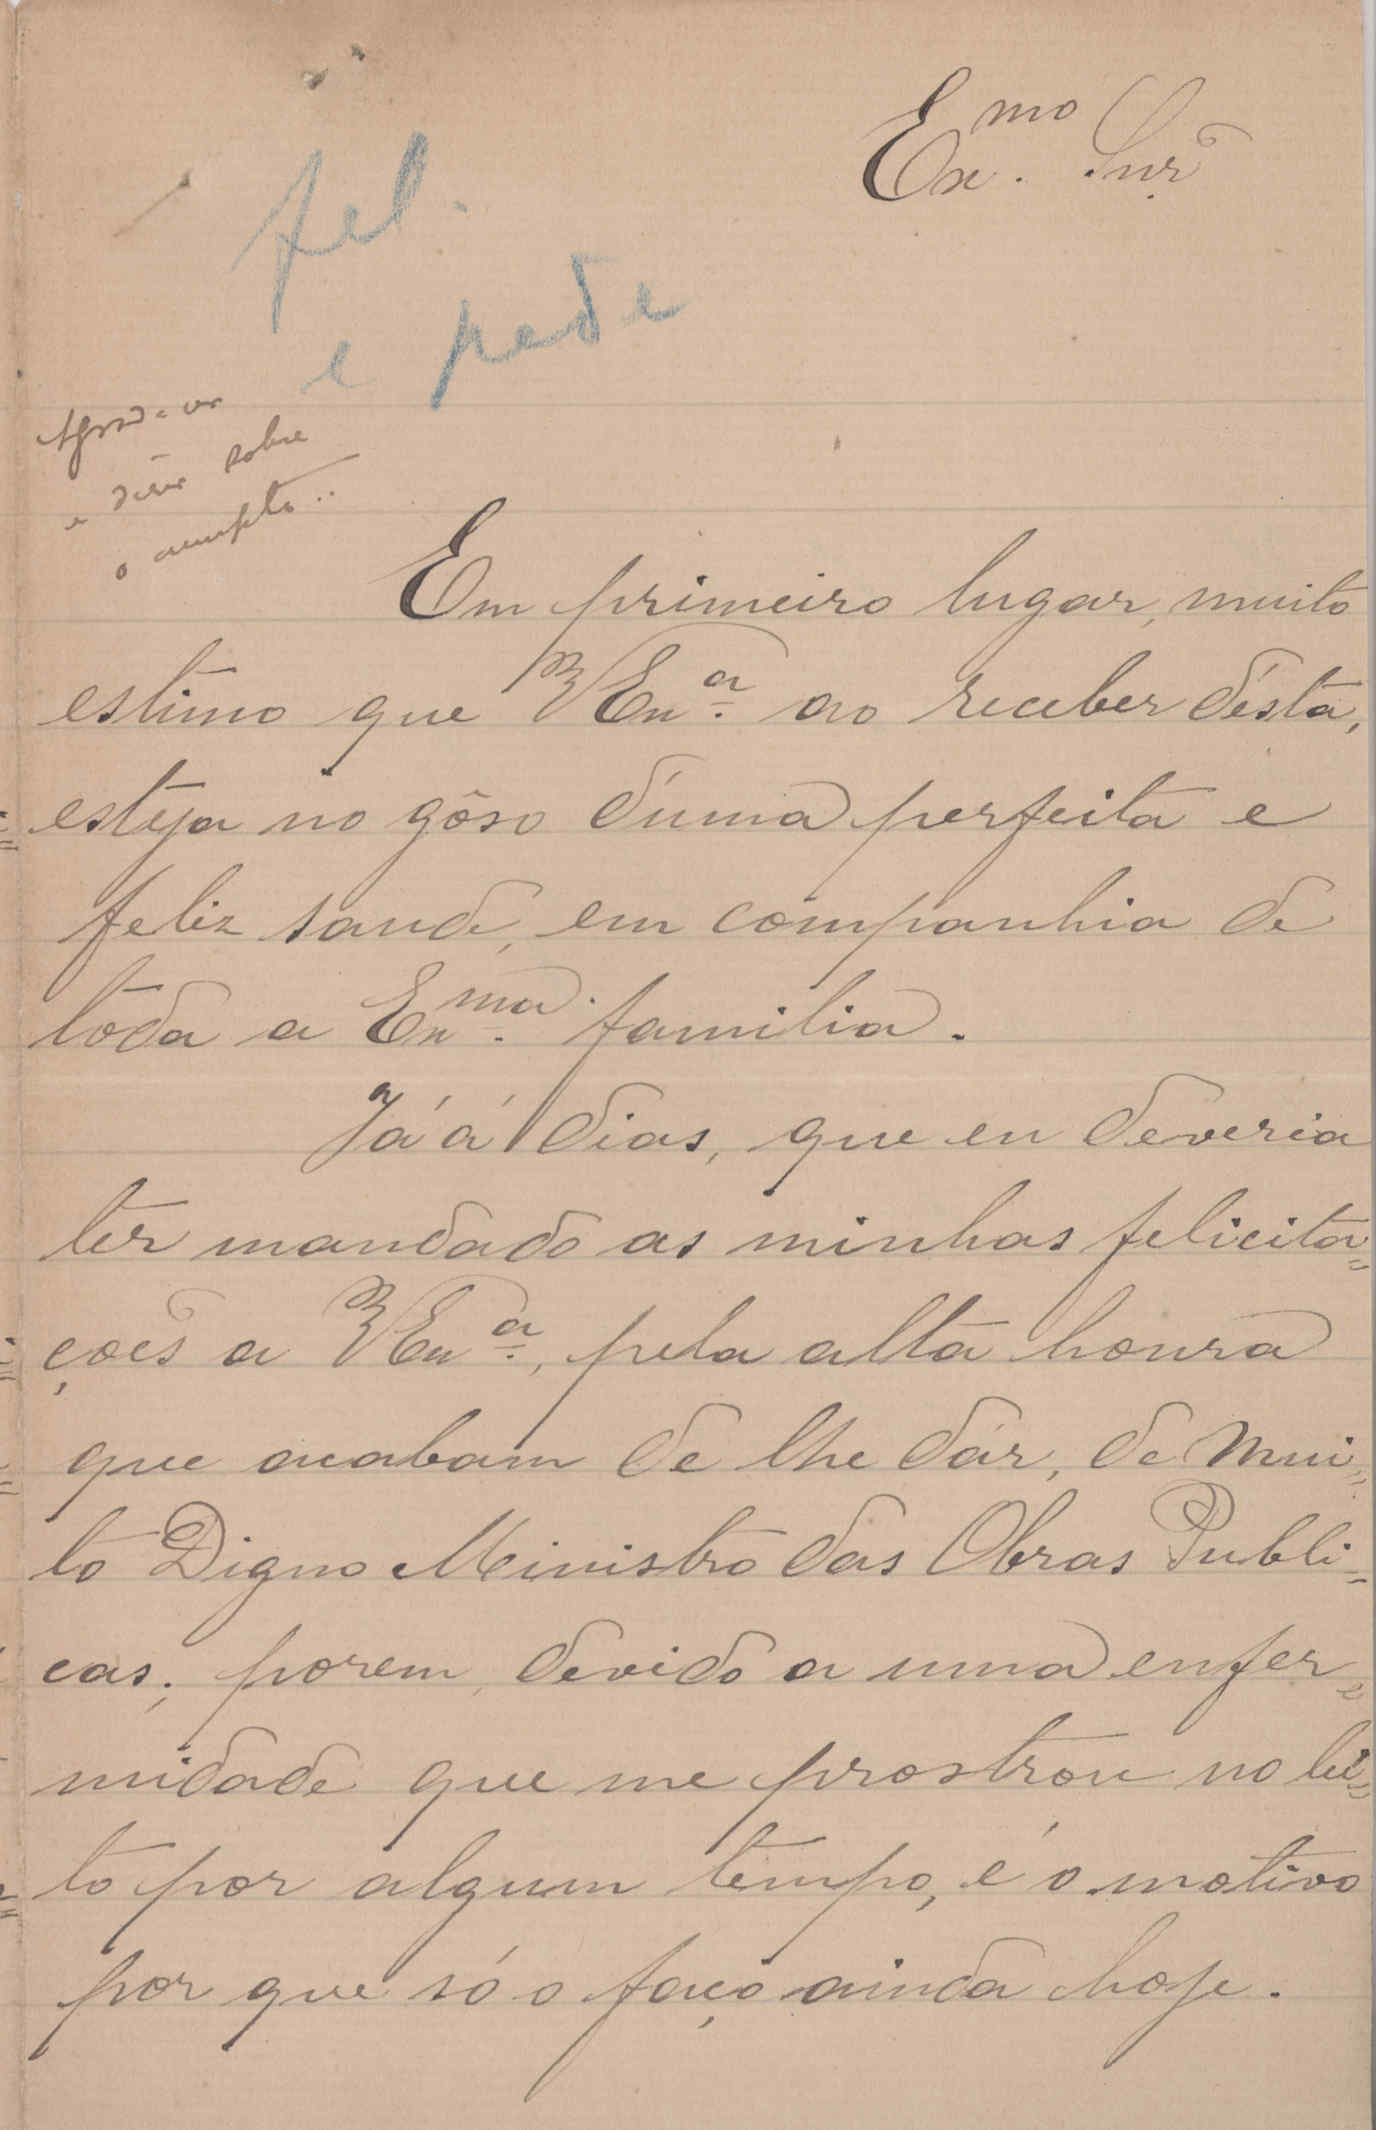 Exmo. Snr
fel.
e pede
Agradecer
e dizer sobre
o assumpto..
Em primeiro lugar, muito
estimo que V Exª. ao receber d'ésta,
esteja no gôso d'uma perfeita e
feliz saude, em companhia de
toda a Exma. familia.
Já á dias, que eu deveria
ter mandado as minhas felicita=
ções a V Exª., pela alta honra
que acabam de lhe dár, de Mui=
to Digno Ministro das Obras Publi=
cas; porem, devido a uma enfer=
midade que me prostrou no lei=
to por algum tempo, é o motivo
por que só o faço ainda hoje.